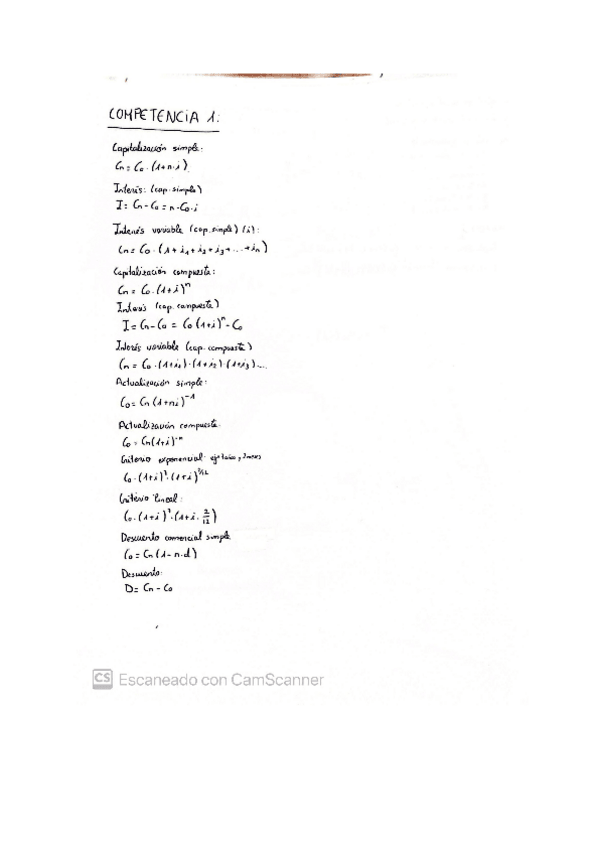 COMPETENCIA 1:
Capitalización simple:
Cn = C0 · (1+n·i)
Interés: (cap. simple)
I = Cn - C0 = n · C0 · i
Interés variable (cap. simple) (i):
Cn = C0 · (1 + i1 + i2 + i3 + ... + in)
Capitalización compuesta:
Cn = C0 · (1+i)^n
Interés (cap. compuesta)
I = Cn - C0 = C0 (1+i)^n - C0
Interés variable (cap. compuesta)
Cn = C0 · (1+i1) · (1+i2) · (1+i3) ...
Actualización simple:
C0 = Cn (1+ni)^-1
Actualización compuesta:
C0 = Cn (1+i)^-n
Criterio exponencial: ej: 2 meses
C0 · (1+i) · (1+i)^2/12
Criterio lineal:
C0 · (1+i) · (1+i · 2/12)
Descuento comercial simple
C0 = Cn (1 - n·d)
Descuento:
D = Cn - C0
CS Escaneado con CamScanner